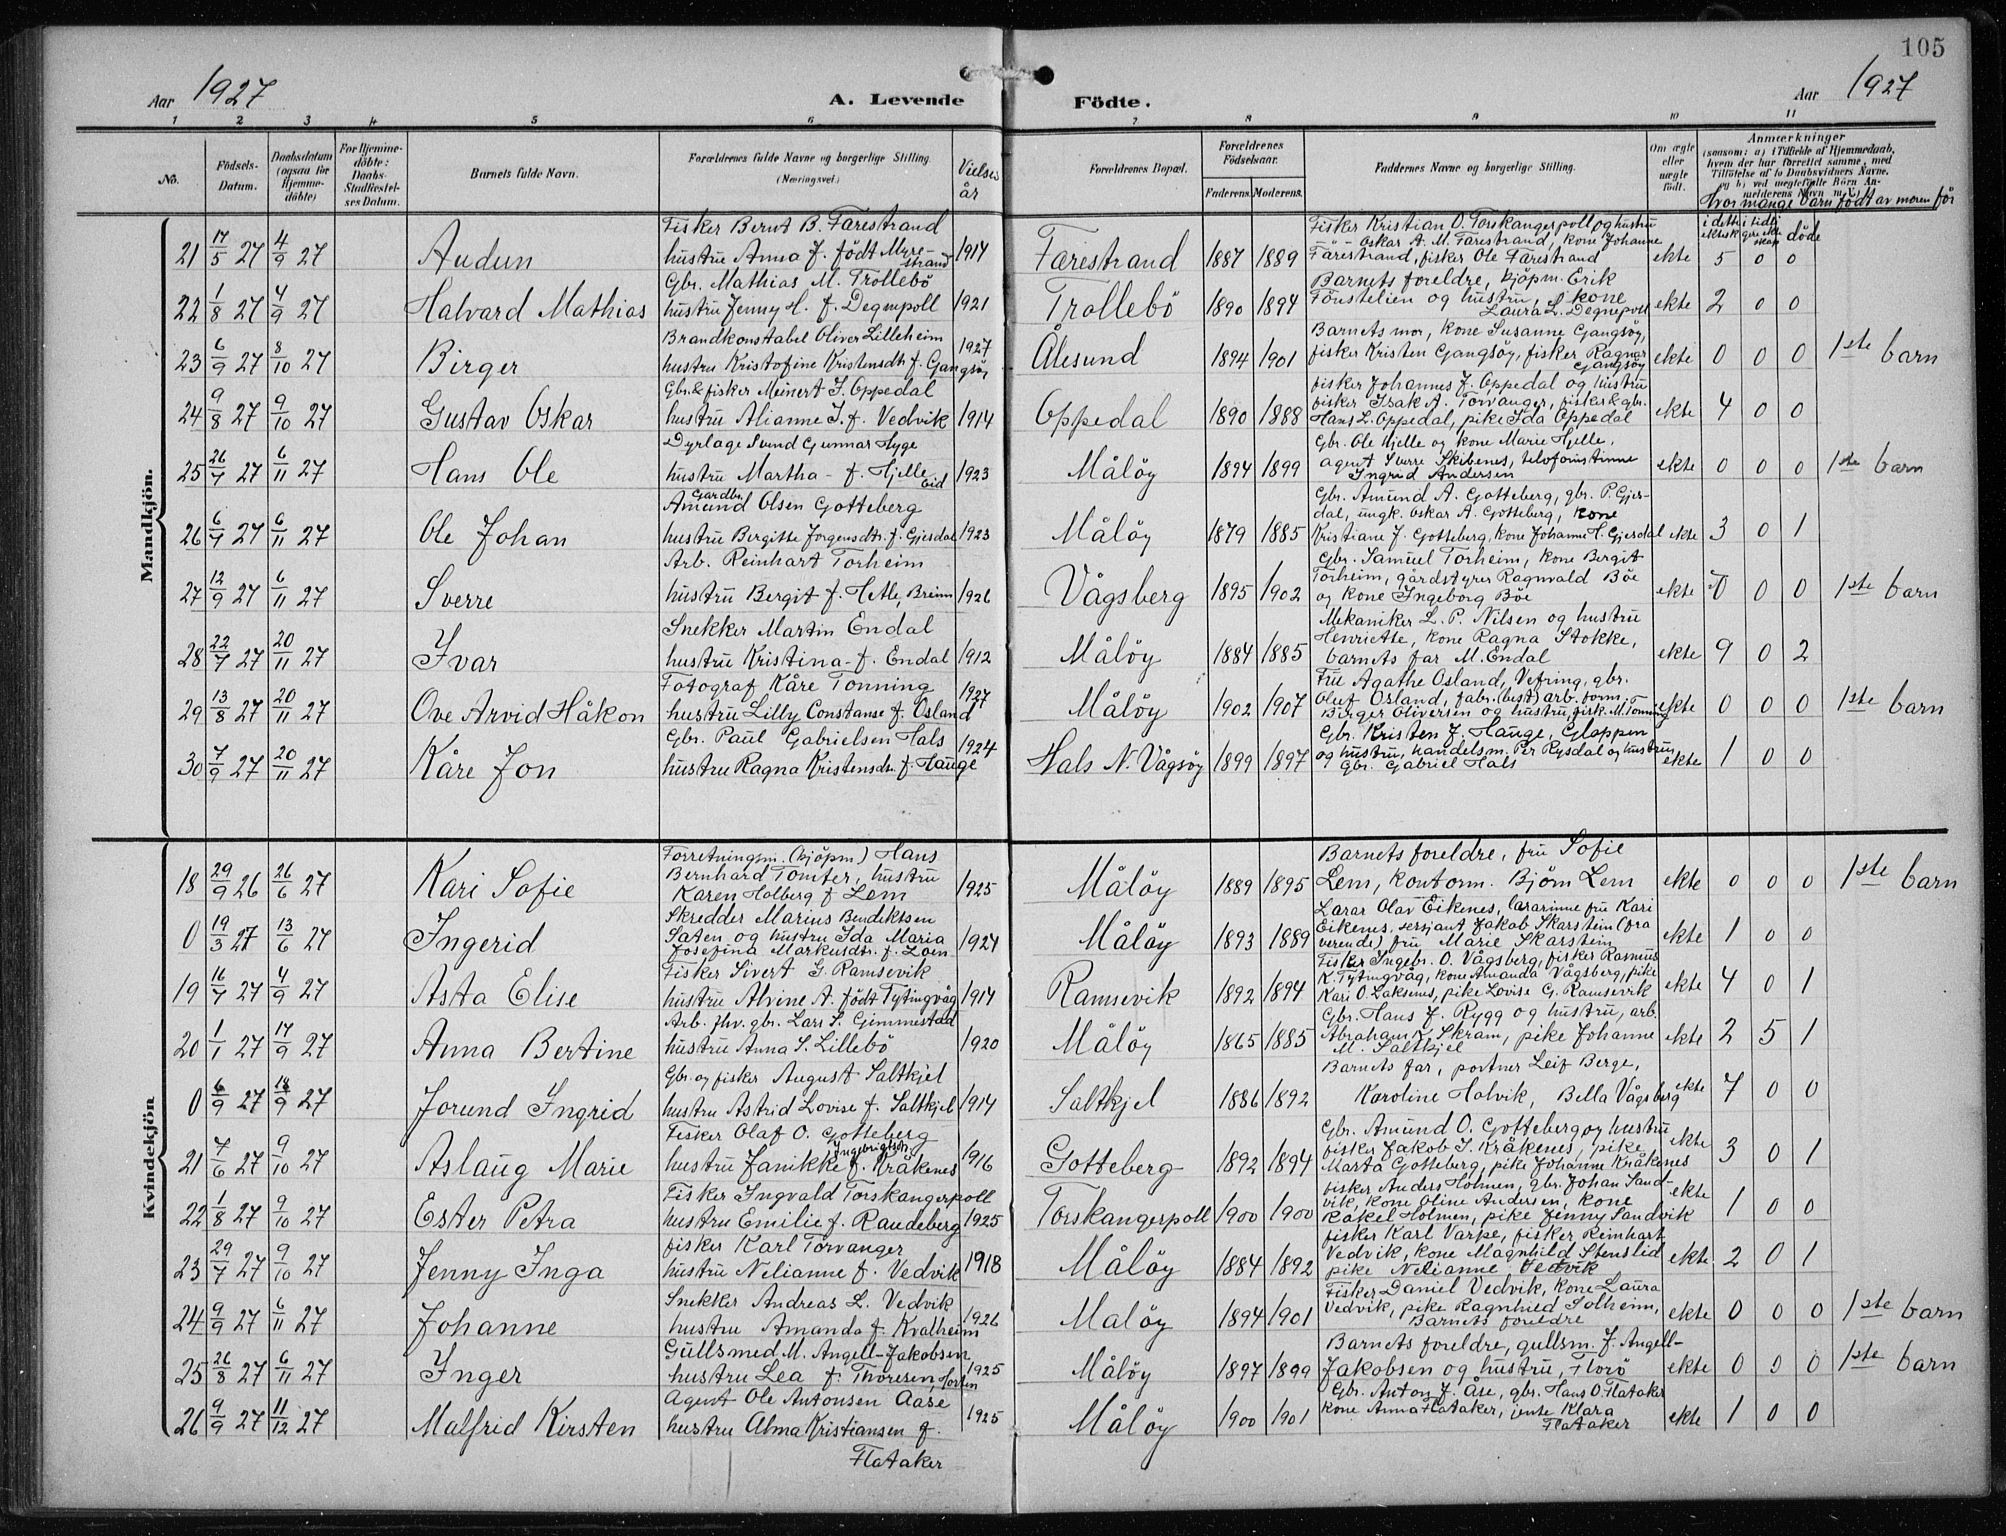 105
Aar 1927 A. Levende Födte. Aar 1927
1 2 3 4 5 6 7 8 9 10 11
No. Födsels-Datum. Daabsdatum (ogsaa for Hjemmedöbte) For Hjemmedöbte: Daabs-Stadfæstelses Datum. Barnets fulde Navn. Forældrenes fulde Navne og borgerlige Stilling. (Næringsvei.) Vielses år Forældrenes Bopæl. Forældrenes Födselsaar. Faderens. Moderens. Faddernes Navne og borgerlige Stilling. Om ægte eller uægte födt. Anmærkninger (saasom: a) i Tilfælde af Hjemmedaab, hvem der har forrettet samme, med Tilföielse af to Daabsvidners Navne, og b) ved uægtefödte Börn Anmelderens Navn m. v.)
Hvor mange barn født av moren før
i dette ektesk. i tidligere ekteskap døde
Mandkjön.
21 17/5 27 4/9 27 Audun Fisker Bernt B. Færestrand hustru Anna J. født Myrestrand 1917 Færestrand 1887 1889 Fisker Kristian O. Torskangerpoll og hustru Oskar A. M. Færestrand, kone Johanne Færestrand, fisker Ole Færestrand ekte 5 0 0
22 1/8 27 4/9 27 Halvard Mathias Gbr. Mathias M. Trollebö hustru Jenny H. f. Degnepoll 1921 Trollebö 1890 1894 Barnets foreldre, kjöpm. Erik Fönstelien og hustru, kone Laura L. Degnepoll ekte 2 0 0
23 6/9 27 8/10 27 Birger Brandkonstabel Oliver Lilleheim hustru Kristofine Kristensdtr. f. Gangsöy 1927 Ålesund 1894 1901 Barnets mor, kone Susanne Gangsöy, fisker Kristen Gangsöy, fisker Ragnar Gangsöy ekte 0 0 0 1ste barn
24 9/8 27 9/10 27 Gustav Oskar Gbr. & fisker Meinert I. Oppedal hustru Alianne I. f. Vedvik 1914 Oppedal 1890 1888 fisker Johannes J. Oppedal og hustru fisker Isak A. Torvanger, fisker & gbr. Hans L. Oppedal, pike Ida Oppedal ekte 4 0 0
25 26/7 27 6/11 27 Hans Ole Dyrlæge Svend Gunnar Hyge hustru Martha - f. Hjelle Eid 1923 Målöy 1894 1899 Gbr. Ole Hjelle og kone Marie Hjelle, agent Sverre Skibenes, telefonistinne Ingrid Andersen ekte 0 0 0 1ste barn
26 6/7 27 6/11 27 Ole Johan Gardbr. Amund Olsen Gotteberg hustru Bergitte Jørgensdtr. f. Gjesdal 1923 Målöy 1879 1885 Gbr. Amund A. Gotteberg, gbr. P. Gjesdal, ungk. Oskar A. Gotteberg, kone Kristiane J. Gotteberg, kone Johanne H. Gjesdal ekte 3 0 1
27 12/9 27 6/11 27 Sverre Arb. Reinhart Torheim hustru Bergit f. Hetle, Breim 1926 Vågsberg 1895 1902 Gbr. Samuel Torheim, kone Bergit Torheim, gårdstyrer Ragnvald Böe og kone Ingeborg Böe ekte 0 0 0 1ste barn
28 22/7 27 20/11 27 Ivar Snekker Martin Endal hustru Kristina - f. Endal 1912 Målöy 1884 1885 Mekaniker L. P. Nilsen og hustru Henriette, kone Ragna Stokke, barnets far M. Endal ekte 9 0 2
29 13/8 27 20/11 27 Ove Arvid Håkon Fotograf Kåre Tonning hustru Lilly Constanse f. Osland 1927 Målöy 1902 1907 Fru Agathe Osland, Vefring, gbr. Oluf Osland, fabr.(best) arb. form. Birger Oliversen og hustru, fisk. M. Tonning ekte 0 0 0 1ste barn
30 7/9 27 20/11 27 Kåre Jon Gbr. Paul Gabrielsen Hals hustru Ragna Kristensdtr. f. Hauge 1924 Hals N. Vågsöy 1899 1897 Gbr. Kristen J. Hauge, Gloppen og hustru, handelsm. Per Rysdal og hustru Gbr. Gabriel Hals ekte 1 0 0
Kvindekjön
18 29/9 26 26/6 27 Kari Sofie Forretningsm. (kjöpm) Hans Bernhard Tomter, hustru Karen Holberg f Lem 1925 Målöy 1889 1895 Barnets foreldre, fru Sofie Lem, kontorm. Bjørn Lem ekte 0 0 0 1ste barn
0 19/3 27 13/6 27 Ingerid Skredder Marius Bendiktsen Sæten og hustru Ida Maria Josefina Markusdtr. f. Loen 1924 Målöy 1893 1889 Lærar Olav Eikenes, lærarinne fru Kari Eikenes, sersjant Jakob Skarstein (fraverende) fru Marie Skarstein ekte 1 0 0
19 16/7 27 4/9 27 Asta Elise Fisker Sivert G. Ramsevik hustru Alvine A. født Tytingvåg 1917 Ramsevik 1892 1894 Fisker Ingebr. O. Vågsberg, fisker Rasmus K. Tytingvåg, kone Amanda Vågsberg, pike Kari O. Laksenes, pike Lovise G. Ramsevik ekte 4 0 1
20 1/1 27 17/9 27 Anna Bertine Arb. fhv. gbr. Lars S. Gimmestad hustru Anna S. Lillebö 1920 Målöy 1865 1885 Gbr. Hans J. Rygg og hustru, arb. Abraham K. Skram, pike Johanne M. Saltkjel ekte 2 5 1
0 6/9 27 18/9 27 Jorund Ingrid Gbr. og fisker August Saltkjel hustru Astrid Lovise f. Saltkjel 1917 Saltkjel 1886 1892 Barnets far, portner Leif Berge, Karoline Halvik, Bella Vågsberg ekte 7 0 0
21 7/6 27 9/10 27 Aslaug Marie Fisker Olaf O. Gotteberg hustru Janikke Ingebrigtsdtr f. Kråkenes 1916 Gotteberg 1892 1894 Gbr. Amund O. Gotteberg og hustru fisker Jakob I. Kråkenes, pike Marta Gotteberg, pike Johanne Kråkenes ekte 3 0 1
22 1/8 27 9/10 27 Ester Petra Fisker Ingvald Torskangerpoll hustru Emilie f. Raudeberg 1925 Torskangerpoll 1900 1900 fisker Anders Holmen, gbr. Johan Sandvik, kone Oline Andersen, kone Rakel Holmen, pike Jenny Sandvik ekte 1 0 0
23 29/7 27 9/10 27 Jenny Inga fisker Karl Torvanger hustru Nelianne f. Vedvik 1918 Målöy 1884 1892 fisker Karl Varpe, fisker Reinhart Vedvik, kone Magnhild Stenslid pike Nelianne Vedvik ekte 2 0 1
24 9/9 27 6/11 27 Johanne Snekker Andreas L. Vedvik hustru Amanda f. Kvalheim 1926 Målöy 1894 1901 Fisker Daniel Vedvik, kone Laura Vedvik, pike Ragnhild Solheim, Barnets foreldre ekte 0 0 0 1ste barn
25 26/8 27 6/11 27 Inger Gullsmed M. Angell-Jakobsen hustru Lea f. Thoresen, Horten 1925 Målöy 1897 1899 Barnets foreldre, gullsm. J. Angell-Jakobsen og hustru, Florö ekte 0 0 0 1ste barn
26 9/9 27 11/12 27 Malfrid Kirsten Agent Ole Antonsen Aase hustru Alma Kristiansen f. Flatåker 1925 Målöy 1900 1901 Gbr. Anton J. Åse, gbr. Hans O. Flatåker kone Anna Flatåker, jente Klara Flatåker ekte 1 0 0